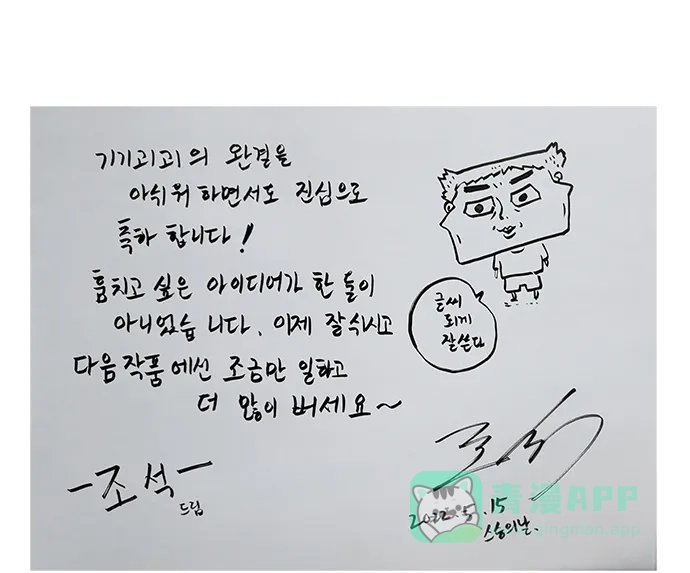 기기괴괴의 완결을
아쉬워 하면서도 진심으로
축하 합니다!
훔치고 싶은 아이디어가 한 둘이
아니었습 니다. 이제 잘 쉬시고
다음 작품에선 조금만 일하고
더 많이 버세요~
글씨
되게
잘쓴다
-조석-
드림
2022. 5. 15
스승의날.
青漫APP